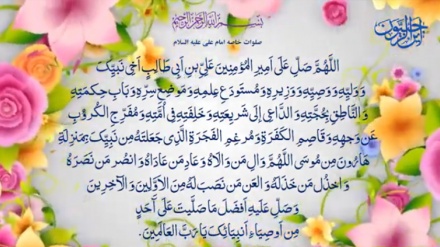 بِسْمِ اللَّهِ الرَّحْمَٰنِ الرَّحِيمِ
صلوات خاصه امام علی علیه السلام
اللَّهُمَّ صَلِّ عَلَى أَمِيرِ الْمُؤْمِنِينَ عَلِيِّ بْنِ أَبِي طَالِبٍ أَخِي نَبِيِّكَ
وَ وَلِيِّهِ وَ وَصِيِّهِ وَ وَزِيرِهِ وَ مُسْتَوْدَعِ عِلْمِهِ وَ مَوْضِعِ سِرِّهِ وَ بَابِ حِكْمَتِهِ
وَ النَّاطِقِ بِحُجَّتِهِ وَ الدَّاعِي إِلَى شَرِيعَتِهِ وَ خَلِيفَتِهِ فِي أُمَّتِهِ وَ مُفَرِّجِ الْكُرُوبِ
عَنْ وَجْهِهِ وَ قَاصِمِ الْكَفَرَةِ وَ مُرْغِمِ الْفَجَرَةِ الَّذِي جَعَلْتَهُ مِنْ نَبِيِّكَ بِمَنْزِلَةِ
هَارُونَ مِنْ مُوسَى اللَّهُمَّ وَالِ مَنْ وَالاهُ وَ عَادِ مَنْ عَادَاهُ وَ انْصُرْ مَنْ نَصَرَهُ
وَ اخْذُلْ مَنْ خَذَلَهُ وَ الْعَنْ مَنْ نَصَبَ لَهُ مِنَ الْأَوَّلِينَ وَ الْآخِرِينَ
وَ صَلِّ عَلَيْهِ أَفْضَلَ مَا صَلَّيْتَ عَلَى أَحَدٍ
مِنْ أَوْصِيَاءِ أَنْبِيَائِكَ يَا رَبَّ الْعَالَمِينَ.